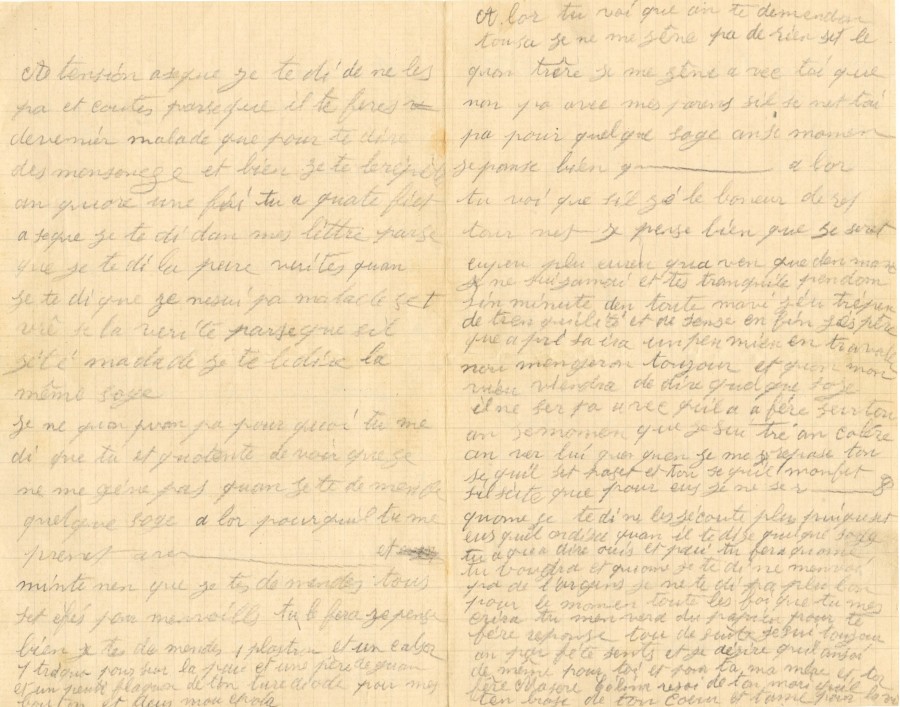 A tension aseque je te di de ne les
pa et coutes parseque il te feres
devenier malade que pour te dire
des mensonege et bien je te lerépète
an quore une foi tu a quate fiest
a seque je te di dan mes lèttre parse
que je te di la pure verites quan
je te di que je nesui pa malade set
vrè se la verité parseque sil
jété madade je te lediré la
même soge
je ne quonpran pa pour quoi tu me
di que tu et quotente de voir que je
ne me gène pas quan je te demende
quelque soge a lor pourquil tu me
prenet a rer et
mintenen que je tes demendes tous
set chés pour merveills tu le fera je pense
bien je te demendes 1 plastron et un calsor
1 tridquo pour sur la paui et une père de guan
et un peusit flaquon de ton ture diode pour mes
bou ton et deus mou choir
A lor tu voi que an te demendan
tousa je ne me gène pa de rien set le
quon trère je me gène a vec toi que
non pa avec mes parens sil se net toi
pa pour quelque soge an se momen
je panse bien q a lor
tu voi que sil jé le boneur de res
tour net je pense bien que je seret
eupeu plu eureu qua ven que den mavi
je ne suisamai etes tranquile pendom
sin menute den toute mavi jéu trépeu
de trenquilité et de sense en fin jéspère
que apré sa ira un peu mieu en travalle
nou mengeron toujour et quan mon
vieu viendra de dire quelque soge
il ne ser pa avec quil a a fére seurtou
an semomen que je sui tré an colère
an ver lui quar quan je me repase tou
se quil set paset et tou se quil monfet
sui site que pour eus je ne ser
quome je te di ne les écoute plu puisquset
eus quil ordise quan il te dise quelque soge
tu a qua dire ouis et paui tu fera quome
tu voudra et quome je te di ne menvoi
pa de l'argens je ne te di pa plu lon
pour le momen toute les foi que tu mes
crira tu men vera du papier pour te
fére reponse tou de suite je sui toujour
an par fète sente et je désire quil ansoi
de même pour toi et pour ta ma mère et tor
fère resoi de ton mari quil
ten brase de ton coeur et taime pour la vie